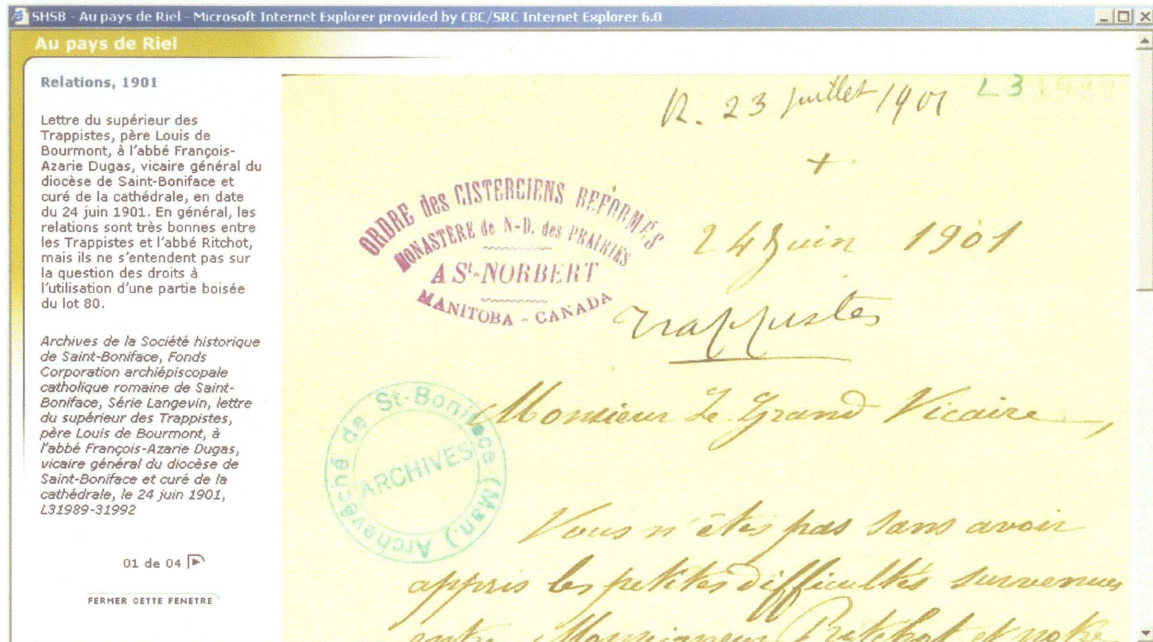 SHSB - Au pays de Riel - Microsoft Internet Explorer provided by CBC/SRC Internet Explorer 6.0
Au pays de Riel
Relations, 1901
Lettre du supérieur des
Trappistes, père Louis de
Bourmont, à l'abbé François-
Azarie Dugas, vicaire général du
diocèse de Saint-Boniface et
curé de la cathédrale, en date
du 24 juin 1901. En général, les
relations sont très bonnes entre
les Trappistes et l'abbé Ritchot,
mais ils ne s'entendent pas sur
la question des droits à
l'utilisation d'une partie boisée
du lot 80.
Archives de la Société historique
de Saint-Boniface, Fonds
Corporation archiépiscopale
catholique romaine de Saint-
Boniface, Série Langevin, lettre
du supérieur des Trappistes,
père Louis de Bourmont, à
l'abbé François-Azarie Dugas,
vicaire général du diocèse de
Saint-Boniface et curé de la
cathédrale, le 24 juin 1901,
L31989-31992
01 de 04
FERMER CETTE FENETRE
R. 23 juillet 1901
L31989
ORDRE des CISTERCIENS REFORMÉS
MONASTÈRE de N-D. des PRAIRIES
A St-NORBERT
MANITOBA - CANADA
24 Juin 1901
Trappistes
Archevêché de St-Boniface (Man.)
ARCHIVES
Monsieur Le Grand Vicaire,
Vous n'êtes pas sans avoir
appris les petites difficultés survenues
entre Monseigneur Ritchot et notre